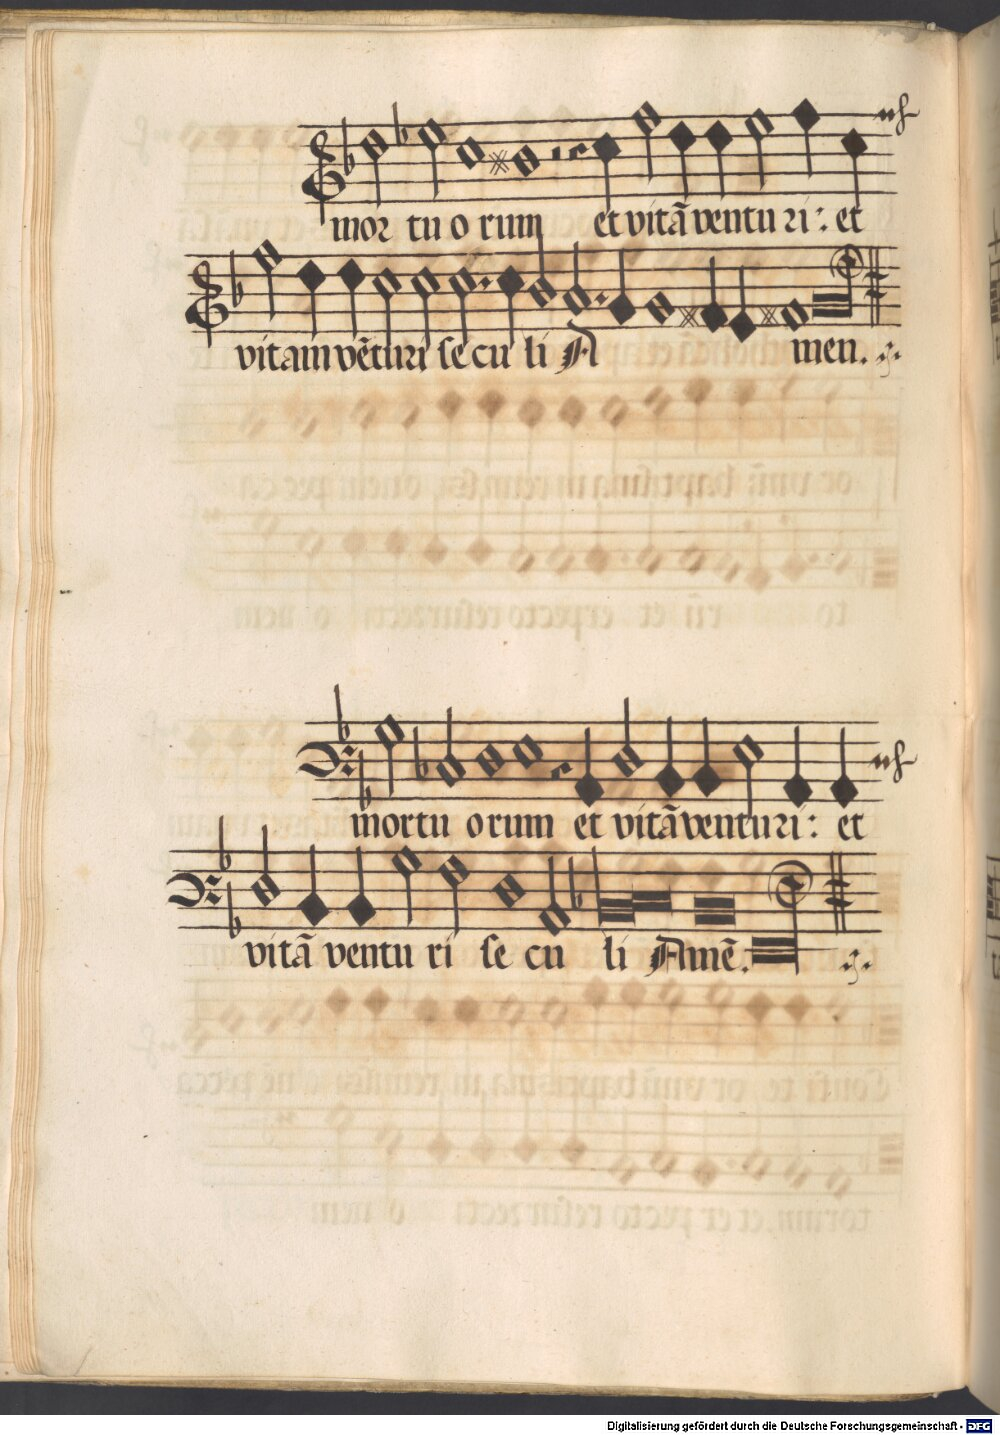 mor tu o rum et vitā ventu ri: et
vitam vēturi se cu li A men.
mortu orum et vitā venturi: et
vitā ventu ri se cu li Amē.
Digitalisierung gefördert durch die Deutsche Forschungsgemeinschaft - DFG